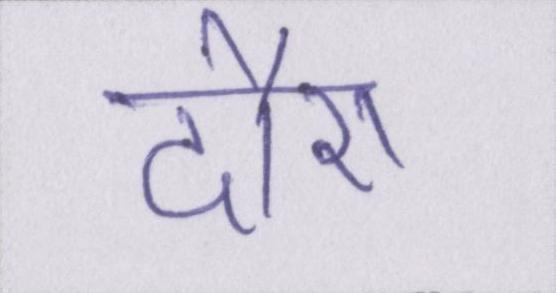 दौरा